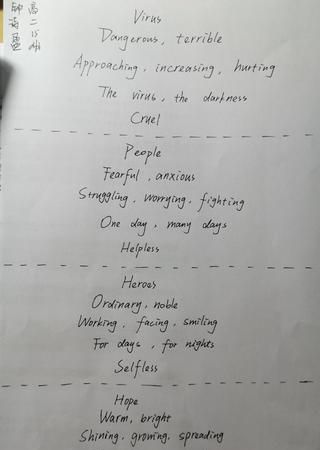 高二15班
Virus
Dangerous, terrible
Approaching, increasing, hurting
The virus, the darkness
Cruel
People
Fearful, anxious
Struggling, worrying, fighting
One day, many days
Helpless
Heroes
Ordinary, noble
Working, facing, smiling
For days, for nights
Selfless
Hope
Warm, bright
Shining, growing, spreading